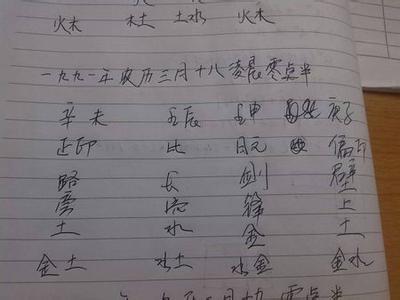 火木 木土 土水 火木
一九九一年农历三月十八凌晨零点半
辛未 壬辰 壬申 庚子
正印 比 日元 偏印
路 长 剑 壁
旁 流 锋 上
土 水 金 土
金土 水土 水金 金水
零点半